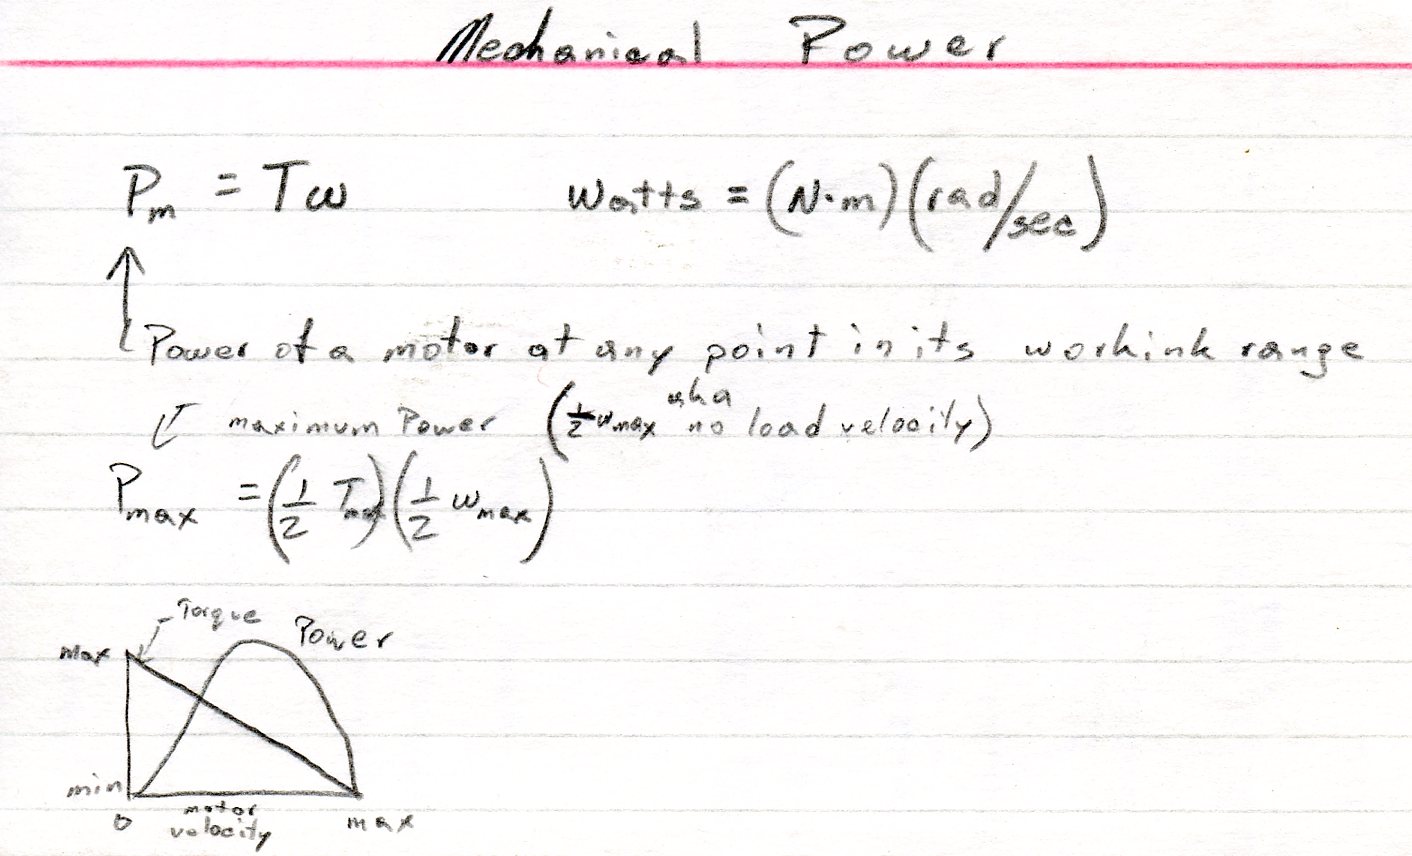 Mechanical Power
Pm = Tω watts = (N·m)(rad/sec)
Power of a motor at any point in its workink range
maximum Power (½ωmax aka no load velocity)
Pmax = (1/2 Tmax)(1/2 ωmax)
Torque
Power
max
min
0 motor velocity max